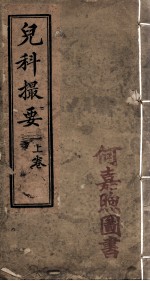 兒科撮要
上卷
何嘉煦圖書